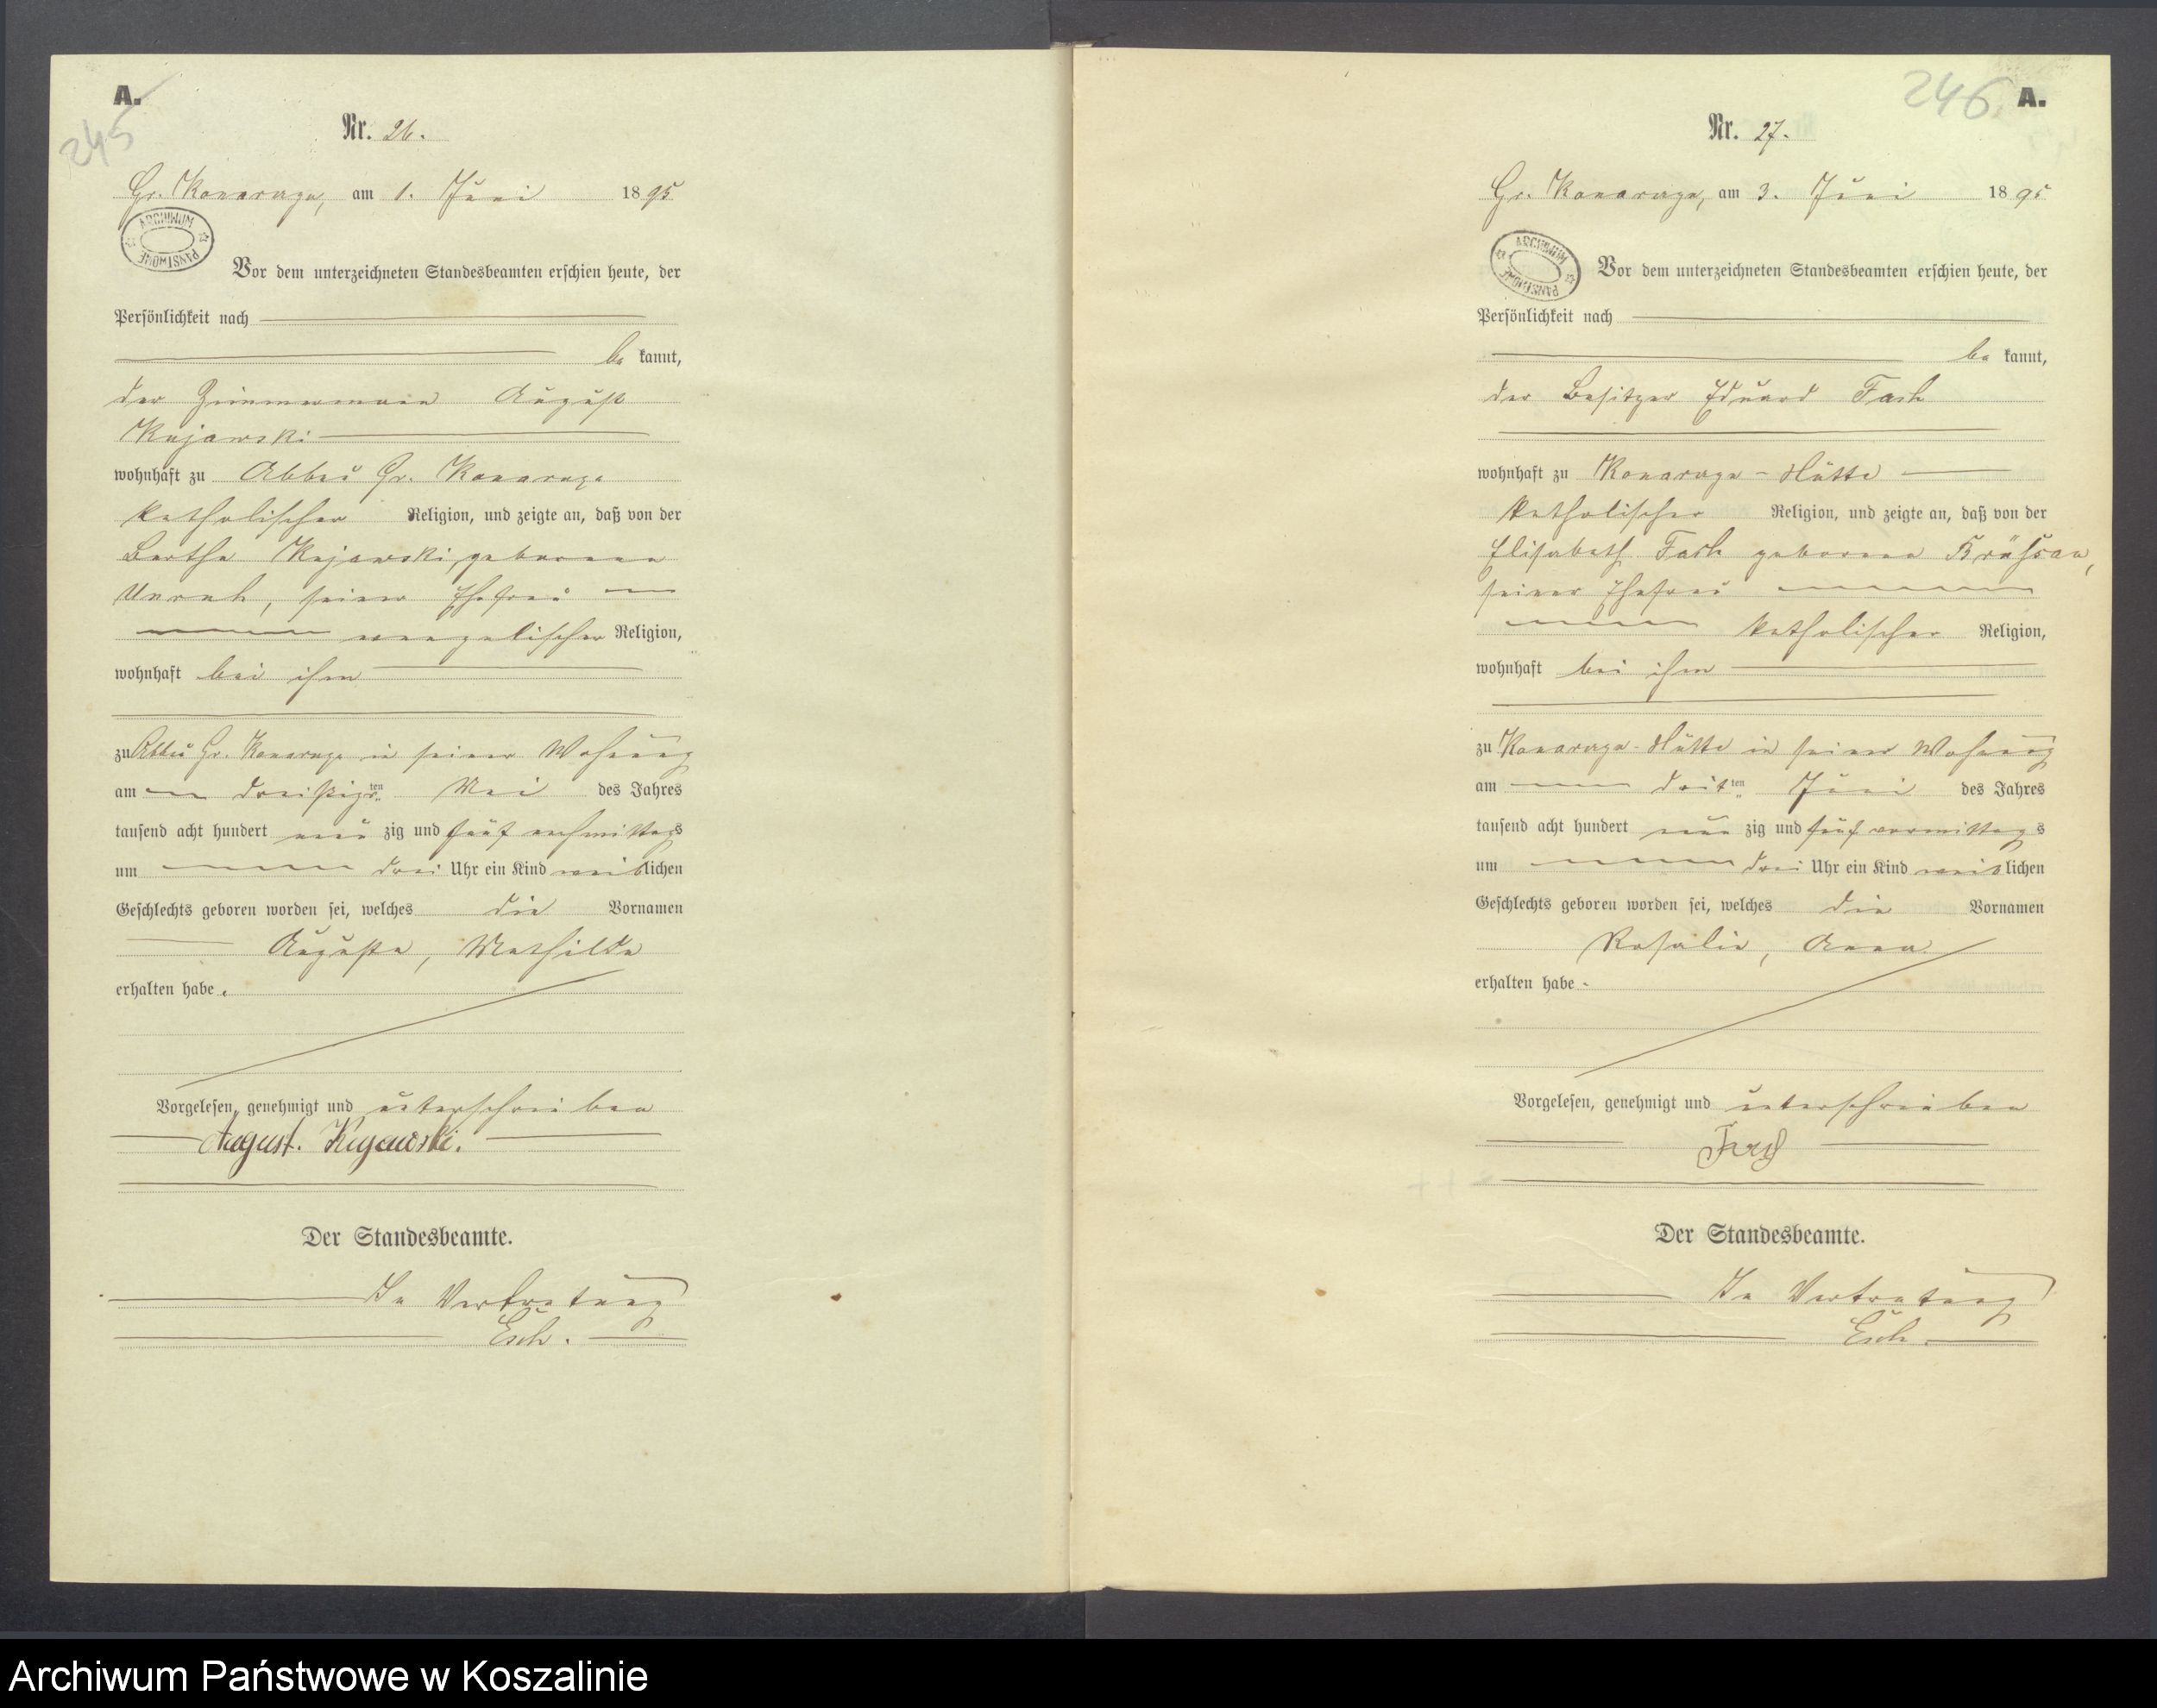 A.
245
Nr. 26.
Gr. Konarczyn, am 1. Juni 1895
ARCHIWUM PAŃSTWOWE
Vor dem unterzeichneten Standesbeamten erschien heute, der
Persönlichkeit nach
be kannt,
der Zimmermann August
Kujawski
wohnhaft zu Abbau Gr.
katholischer Religion, und zeigte an, daß von der
Bertha Kujawski, geborene
Unrah, seiner Ehefrau
evangelischer Religion,
wohnhaft bei ihm
zu Abbau Gr. in seiner Wohnung
am dreißigsten Mai des Jahres
tausend acht hundert neun zig und fünf nachmittags
um drei Uhr ein Kind weiblichen
Geschlechts geboren worden sei, welches die Vornamen
Auguste, Mathilde
erhalten habe.
Vorgelesen, genehmigt und unterschrieben
August. Kujawski.
Der Standesbeamte.
In Vertretung
Esch.
246. A.
Nr. 27.
Gr. am 3. Juni 1895
ARCHIWUM PAŃSTWOWE
Vor dem unterzeichneten Standesbeamten erschien heute, der
Persönlichkeit nach
be kannt,
der Besitzer Eduard Fach
wohnhaft zu Hütte
katholischer Religion, und zeigte an, daß von der
Elisabeth Fach geborene
seiner Ehefrau
katholischer Religion,
wohnhaft bei ihm
zu Hütte in seiner Wohnung
am dritten Juni des Jahres
tausend acht hundert neun zig und fünf vormittags
um drei Uhr ein Kind weiblichen
Geschlechts geboren worden sei, welches die Vornamen
Rosalie, Anna
erhalten habe.
Vorgelesen, genehmigt und unterschrieben
Der Standesbeamte.
In Vertretung
Esch.
Archiwum Państwowe w Koszalinie